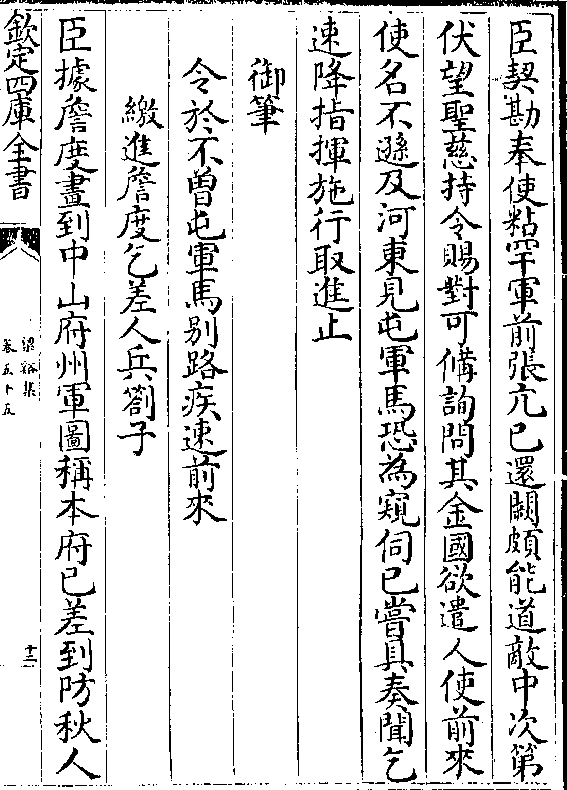 臣契勘奉使粘罕軍前張亢已還闕頗能道敵中次第
伏望聖慈持令賜對可備詢問其金國欲遣人使前來
使名不遜及河東見屯軍馬恐為窺伺已嘗具奏聞乞
速降指揮施行取進止
御筆
令於不曾屯軍馬别路疾速前來
繳進詹度乞差人兵劄子
臣據詹度畫到中山府州軍圖稱本府已差到防秋人
欽定四庫全書
梁谿集
卷五十五
十二